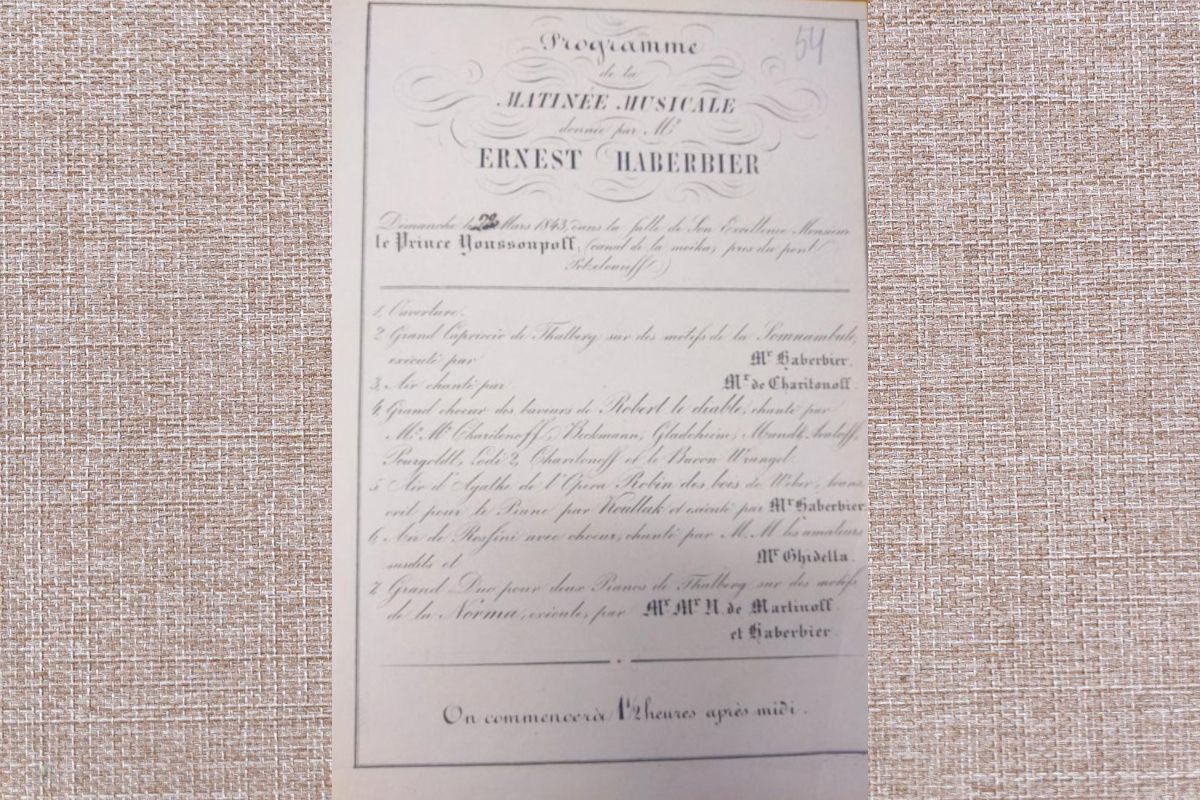 54
Programme
de la
MATINÉE MUSICALE
donnée par Mr
ERNEST HABERBIER
Dimanche le Mars 1843, dans la salle de Son Excellence Monsieur
le Prince Youssoupoff, (canal de la moika, près du pont
)
1. Ouverture.
2. Grand Capriccio de Thalberg sur des motifs de la Somnambule,
exécuté par Mr Haberbier.
3. Air chanté par Mr de Charitonoff.
4. Grand choeur des buveurs de Robert le diable, chanté par
Mr. Mr Charitonoff, Beckmann, Gladcheim, Mandt, Avaloff,
Pourgoldt, Lodi 2, Charitonoff et le Baron Wrangel.
5. Air d'Agathe de l'Opéra Robin des bois de Wéber, trans
crit pour le Piano par Koullak et exécuté par Mr Haberbier
6. Air de Rossini avec choeur, chanté par M. M les amateurs
susdits et Mr Ghidella.
7. Grand Duo pour deux Pianos de Thalberg sur des motifs
de la Norma, exécuté, par Mr Mr N. de Martinoff.
et Haberbier.
On commencera à 1 1/2 heures après midi.